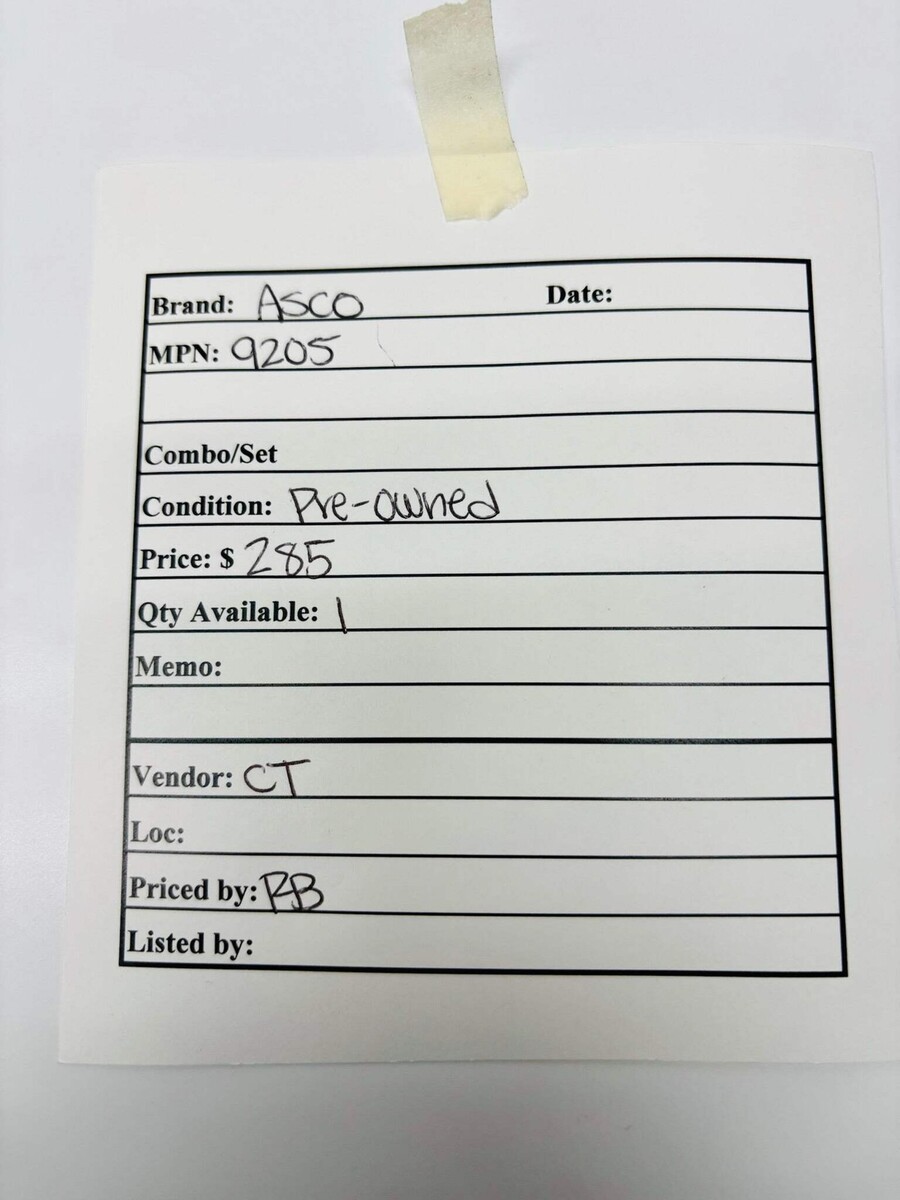 Brand: ASCO Date:
MPN: 9205
Combo/Set
Condition: Pre-owned
Price: $ 285
Qty Available: 1
Memo:
Vendor: CT
Loc:
Priced by: RB
Listed by: